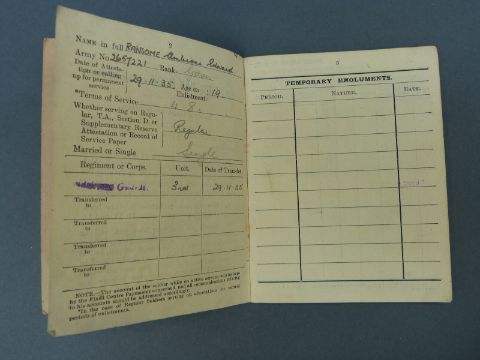 2
NAME in full RANSOME Ambrose Edward
Army No. 2657221 Rank
Date of Attesta-
tion or calling
up for permanent
service 29-11-35 Age on
Enlistment :19
*Terms of Service 4 & 8
Whether serving on Regu-
lar, T.A., Section D. or
Supplementary Reserve
Attestation or Record of
Service Paper Regular
Married or Single Single
Regiment or Corps. Unit. Date of Transfer
Guards. 3rd 29-11-35
Transferred
to
Transferred
to
Transferred
to
Transferred
to
NOTE.—The account of the soldier while on active service will be
by the Fixed Centre Paymaster
to his accounts should be addressed accordingly.
*In the case of Regular Soldiers
periods of enlistment.
3
TEMPORARY EMOLUMENTS.
PERIOD. NATURE. RATE.